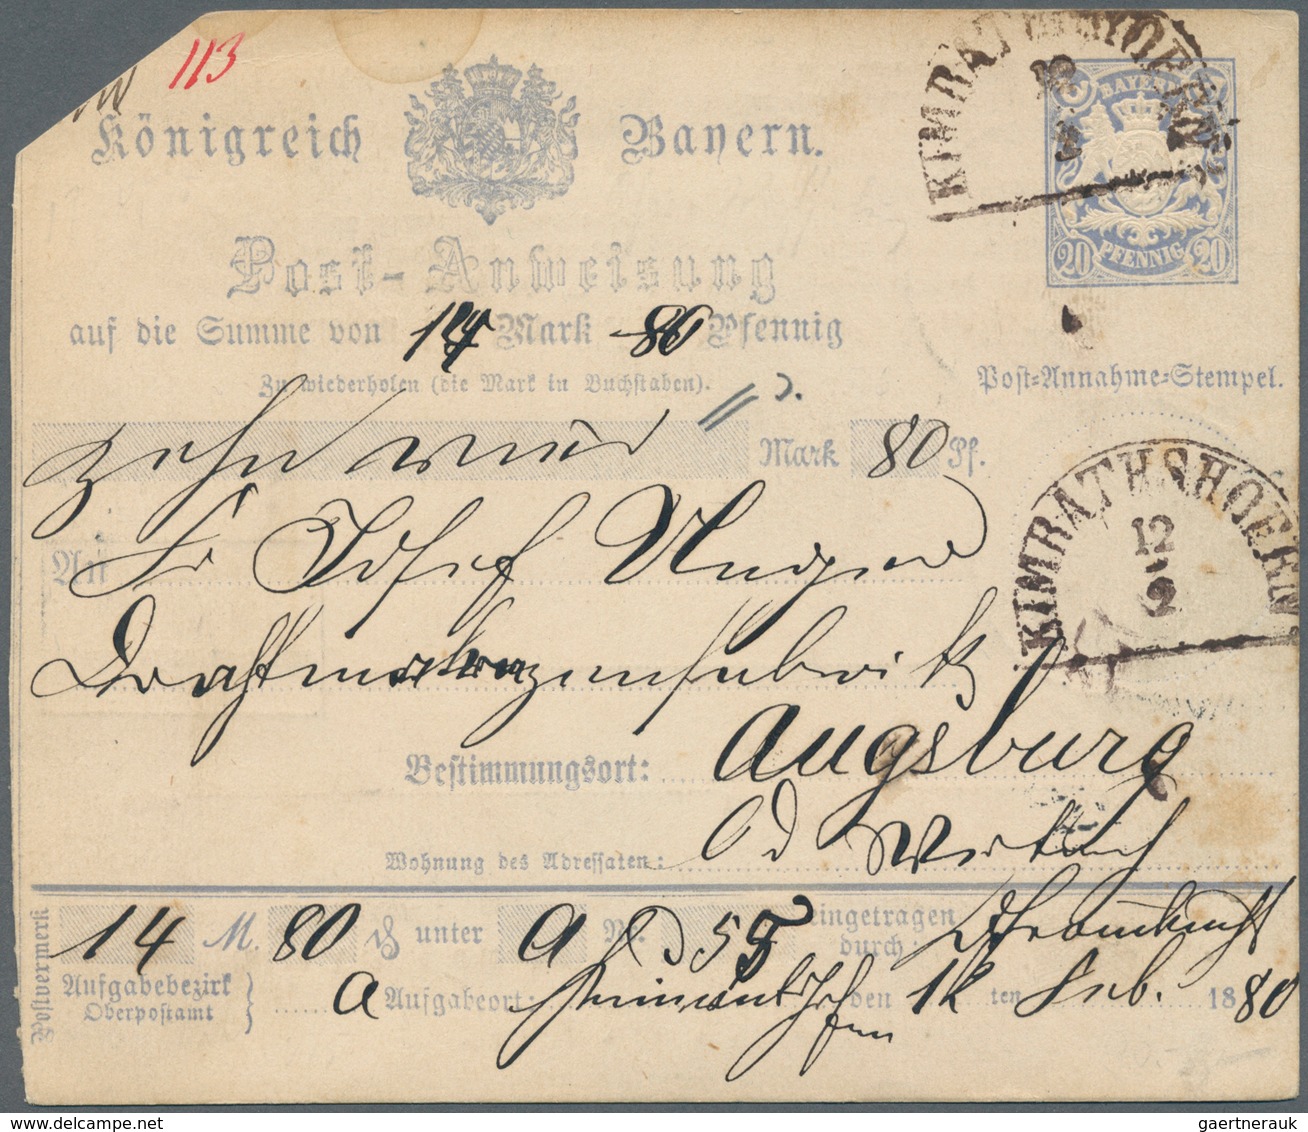 113
Königreich Bayern.
KIMRAT
12
2
BAYERN
20 PFENNIG 20
Post-Anweisung
auf die Summe von 14 Mark 80 Pfennig
Zu wiederholen (die Mark in Buchstaben).
Post=Annahme=Stempel.
zehn vier Mark 80 Pf.
KIMRATHSHOFEN.
12
2
An
Josef Unger
Bestimmungsort: Augsburg
Wohnung des Adressaten: Wertach
Postvermerk
14 M. 80 ₰ unter A Nr. 55 eingetragen durch:
Aufgabebezirk
Oberpostamt
A Aufgabeort: Kimratshofen den 12 ten Feb. 1880
gaertnerauk